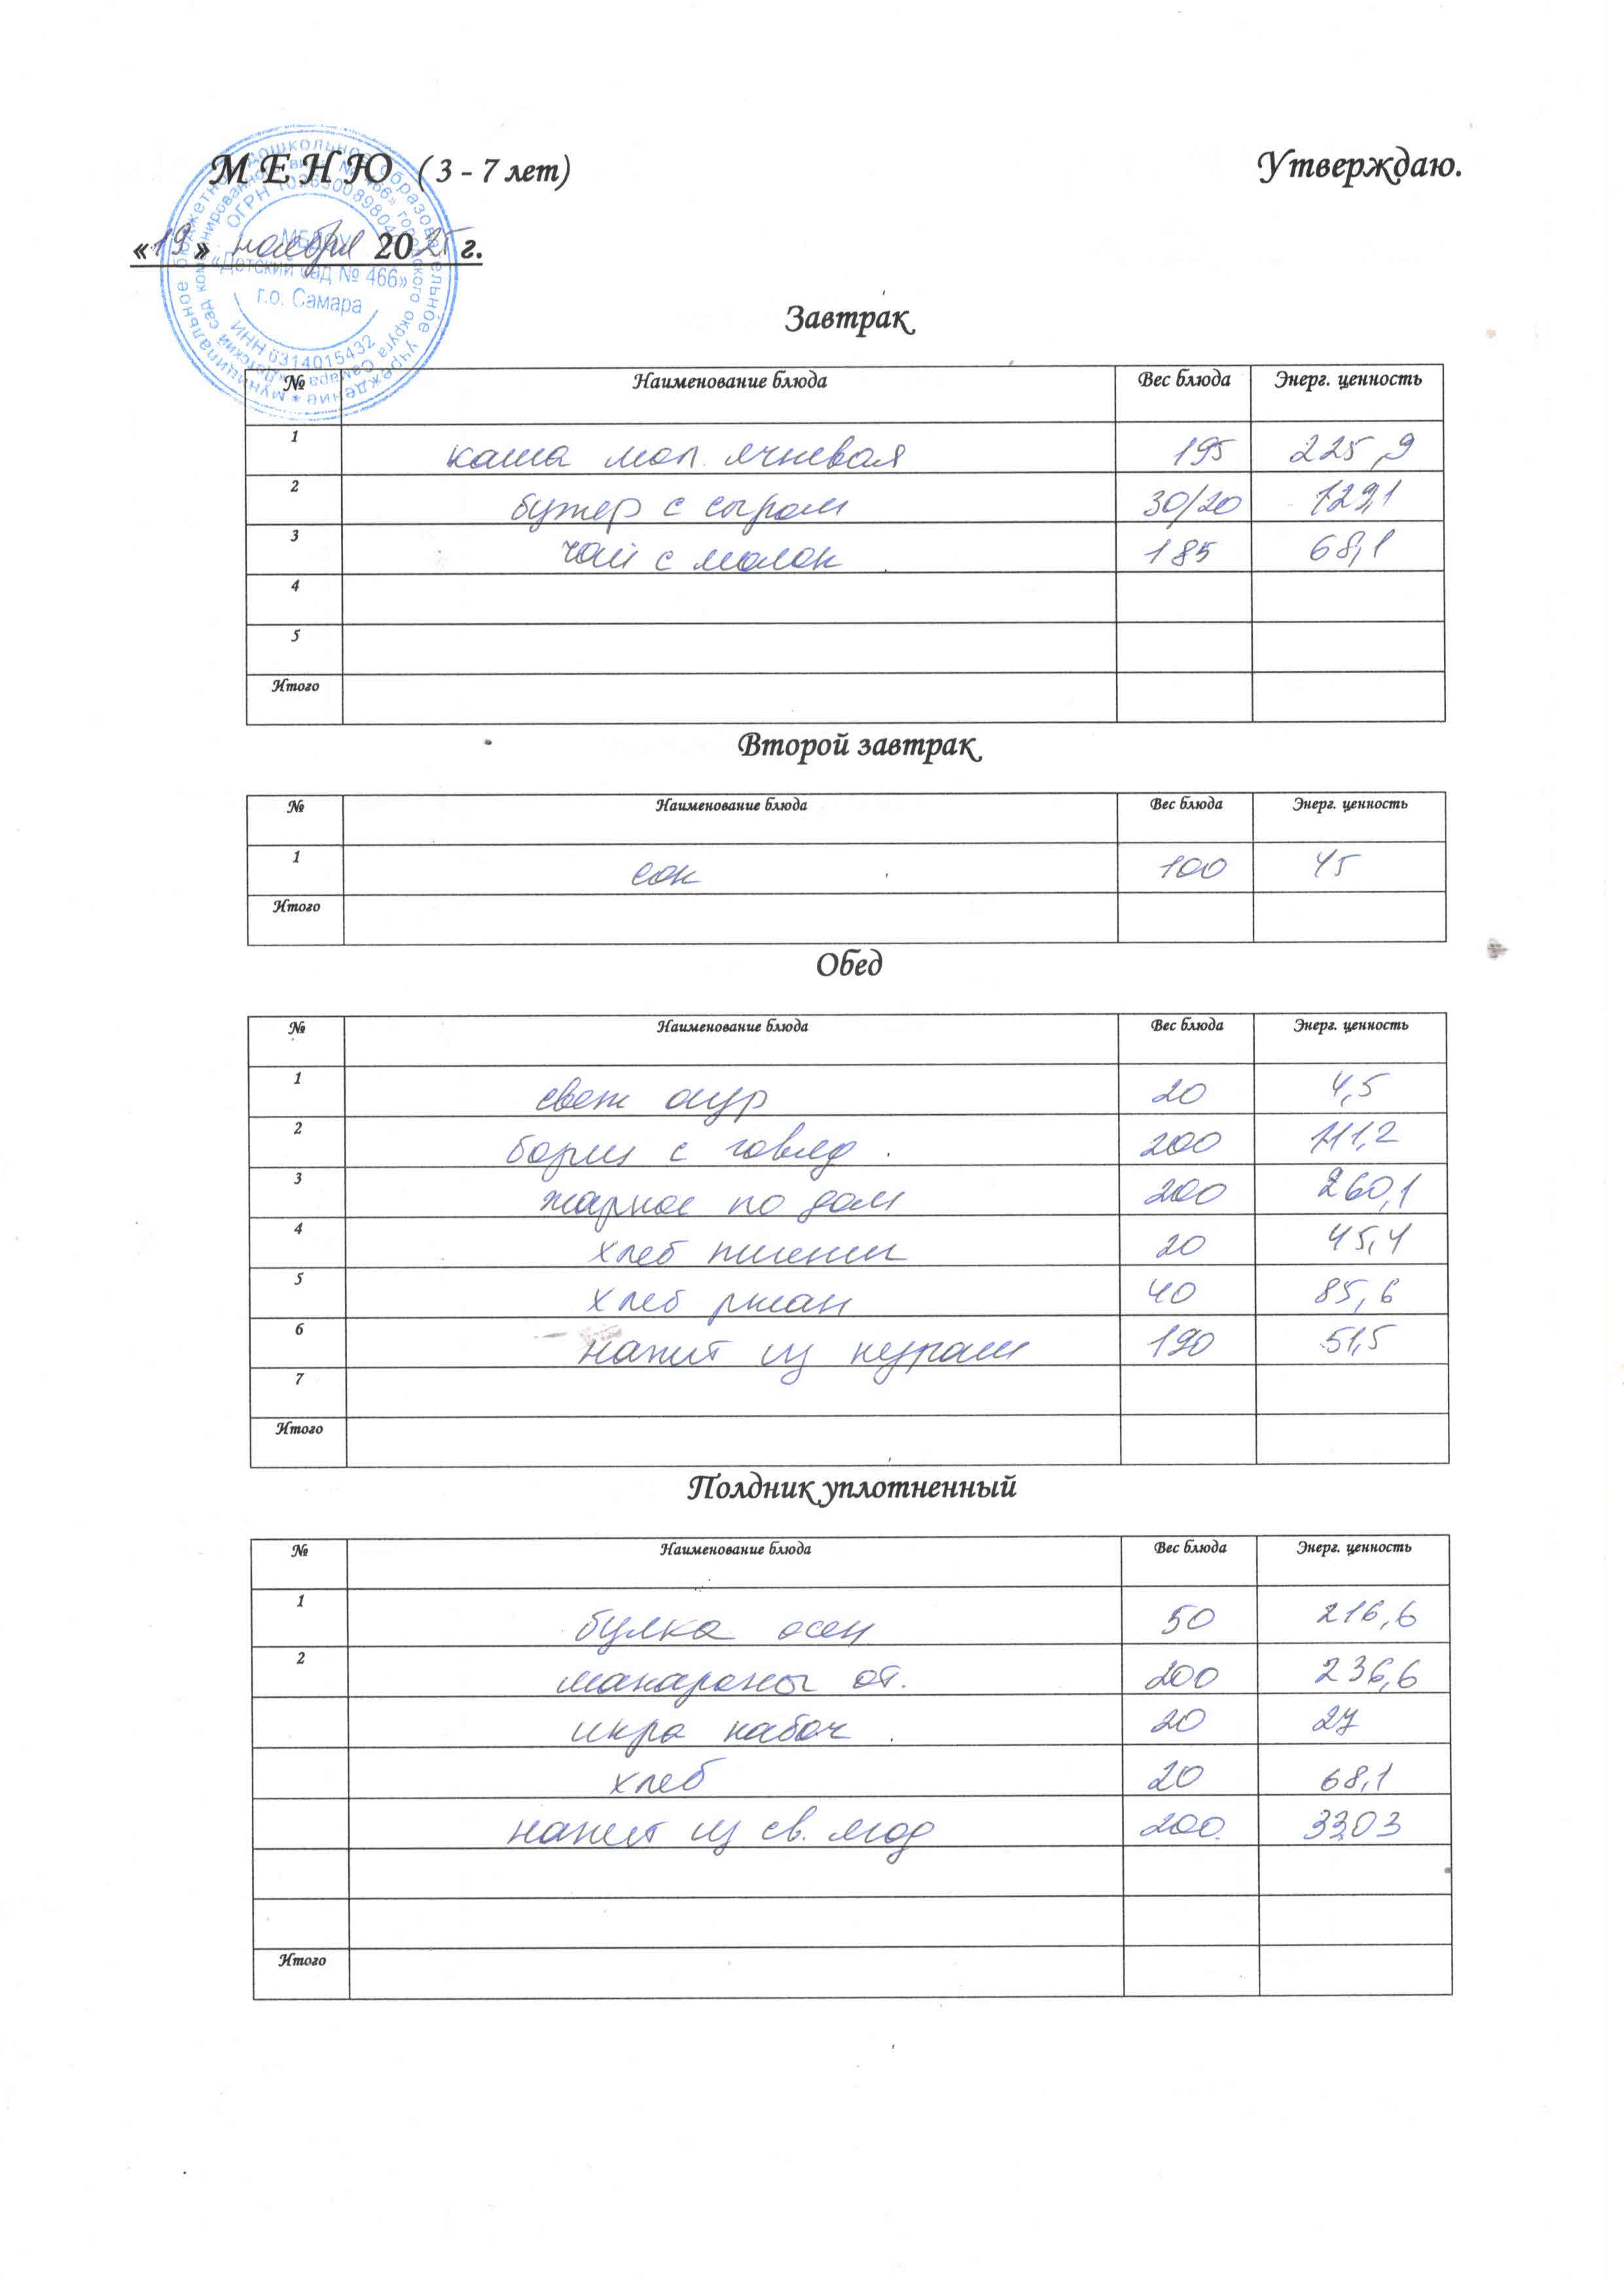 М Е Н Ю ( 3 - 7 лет) Утверждаю.
«19» ноября 2025 г.
МБДОУ
«Детский сад № 466»
г.о. Самара
ИНН 6314015432
Завтрак
№ Наименование блюда Вес блюда Энерг. ценность
1 каша мол. ячневая 195 225,9
2 бутер с сыром 30/20 129,1
3 чай с молок 185 68,1
4
5
Итого
Второй завтрак
№ Наименование блюда Вес блюда Энерг. ценность
1 сок 100 45
Итого
Обед
№ Наименование блюда Вес блюда Энерг. ценность
1 свеж огур 20 4,5
2 борщ с говяд. 200 111,2
3 жаркое по дом 200 260,1
4 хлеб пшенич 20 45,4
5 хлеб ржан 40 85,6
6 напит из кураги 190 51,5
7
Итого
Полдник уплотненный
№ Наименование блюда Вес блюда Энерг. ценность
1 булка осен 50 216,6
2 макароны от. 200 236,6
икра кабач. 20 27
хлеб 20 68,1
напит из св. ягод 200 33,03
Итого